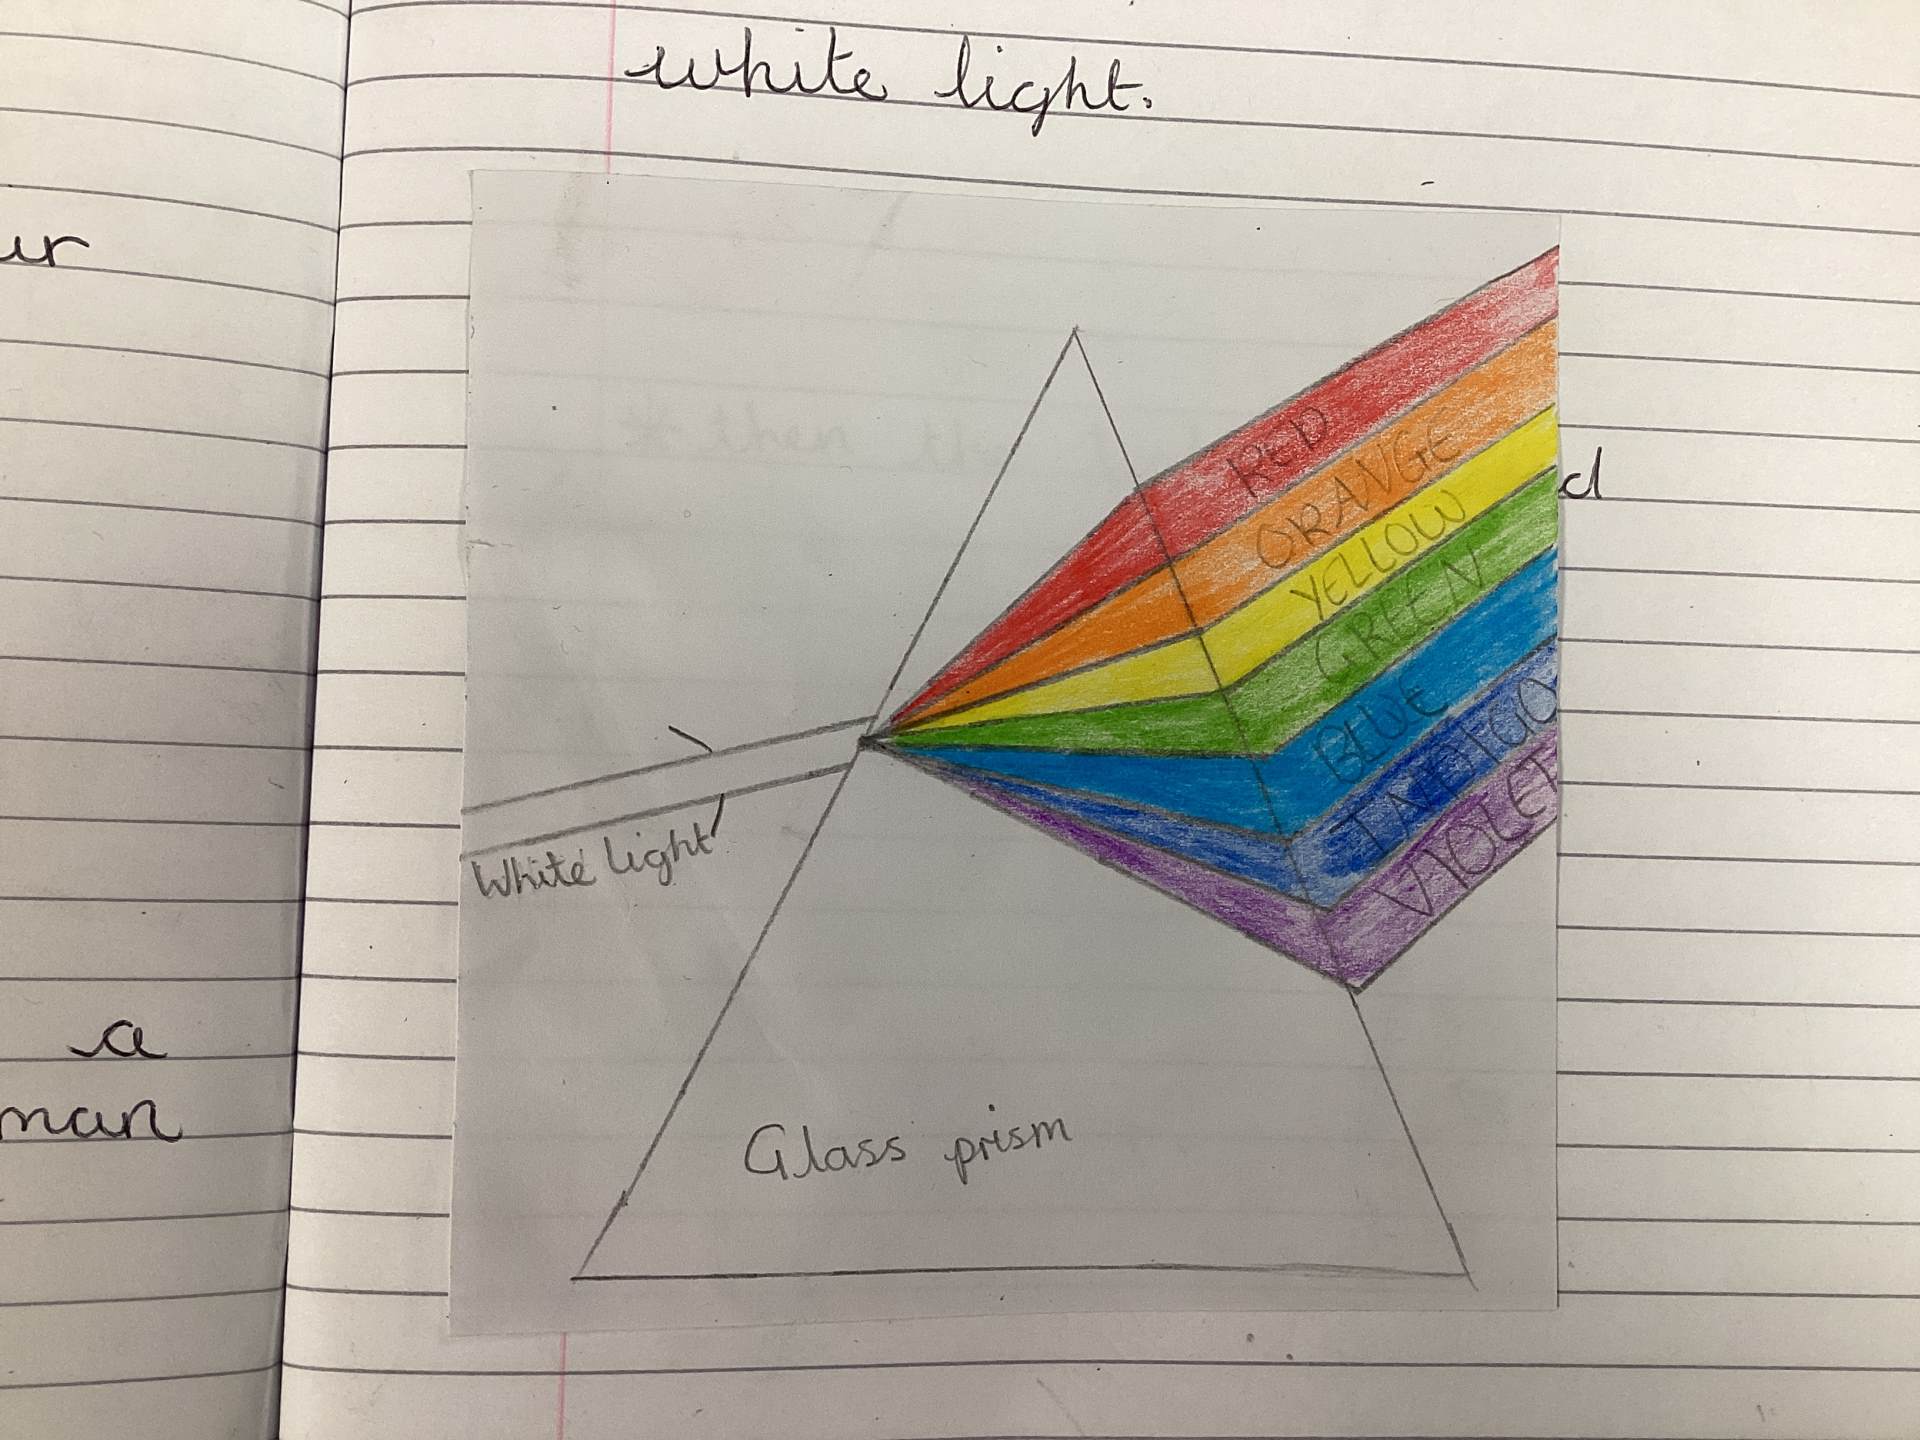 white light.
ur
* then
RED
ORANGE
YELLOW
GREEN
BLUE
INDIGO
VIOLET
d
White light
a
man
Glass prism